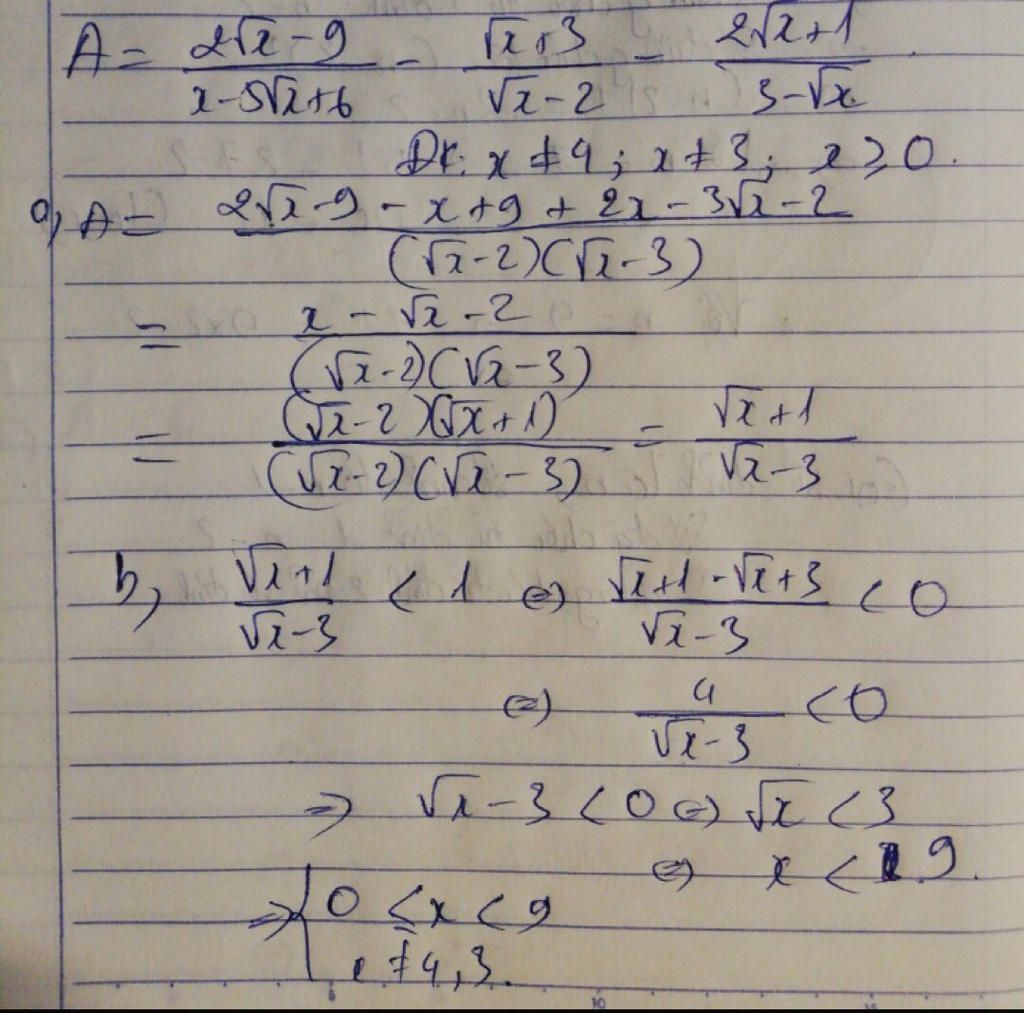 A = \frac{2\sqrt{x}-9}{x-5\sqrt{x}+6} - \frac{\sqrt{x}+3}{\sqrt{x}-2} - \frac{2\sqrt{x}+1}{3-\sqrt{x}}.
ĐK: x ≠ 4; x ≠ 3; x ⩾ 0.
a, A = \frac{2\sqrt{x}-9-x+9+2x-3\sqrt{x}-2}{(\sqrt{x}-2)(\sqrt{x}-3)}
= \frac{x-\sqrt{x}-2}{(\sqrt{x}-2)(\sqrt{x}-3)}
= \frac{(\sqrt{x}-2)(\sqrt{x}+1)}{(\sqrt{x}-2)(\sqrt{x}-3)} = \frac{\sqrt{x}+1}{\sqrt{x}-3}
b, \frac{\sqrt{x}+1}{\sqrt{x}-3} < 1 ⇔ \frac{\sqrt{x}+1-\sqrt{x}+3}{\sqrt{x}-3} < 0
⇔ \frac{4}{\sqrt{x}-3} < 0
⇒ \sqrt{x}-3 < 0 ⇔ \sqrt{x} < 3
⇔ x < 9.
⇒ 0 ≤ x < 9
x ≠ 4, 3.
10